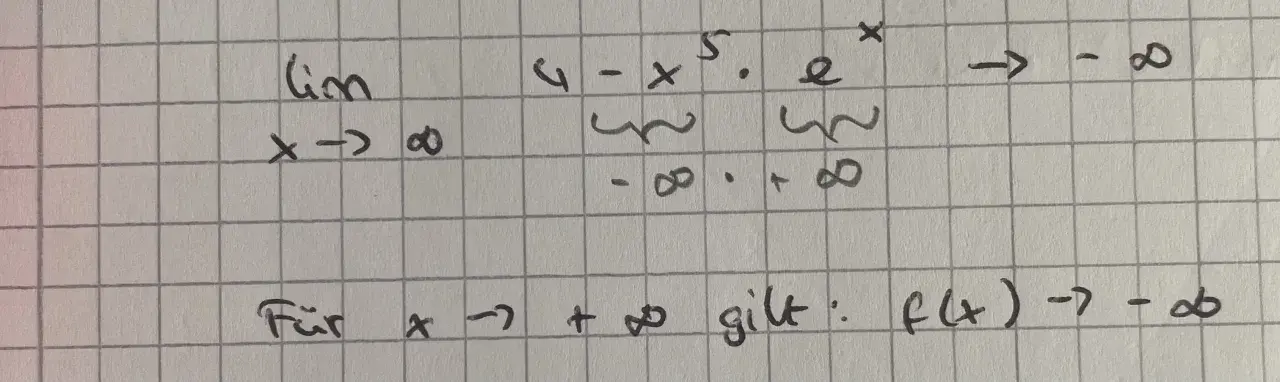 lim 4 - x⁵ · eˣ → - ∞
x → ∞
- ∞ · + ∞
Für x → + ∞ gilt: f(x) → - ∞